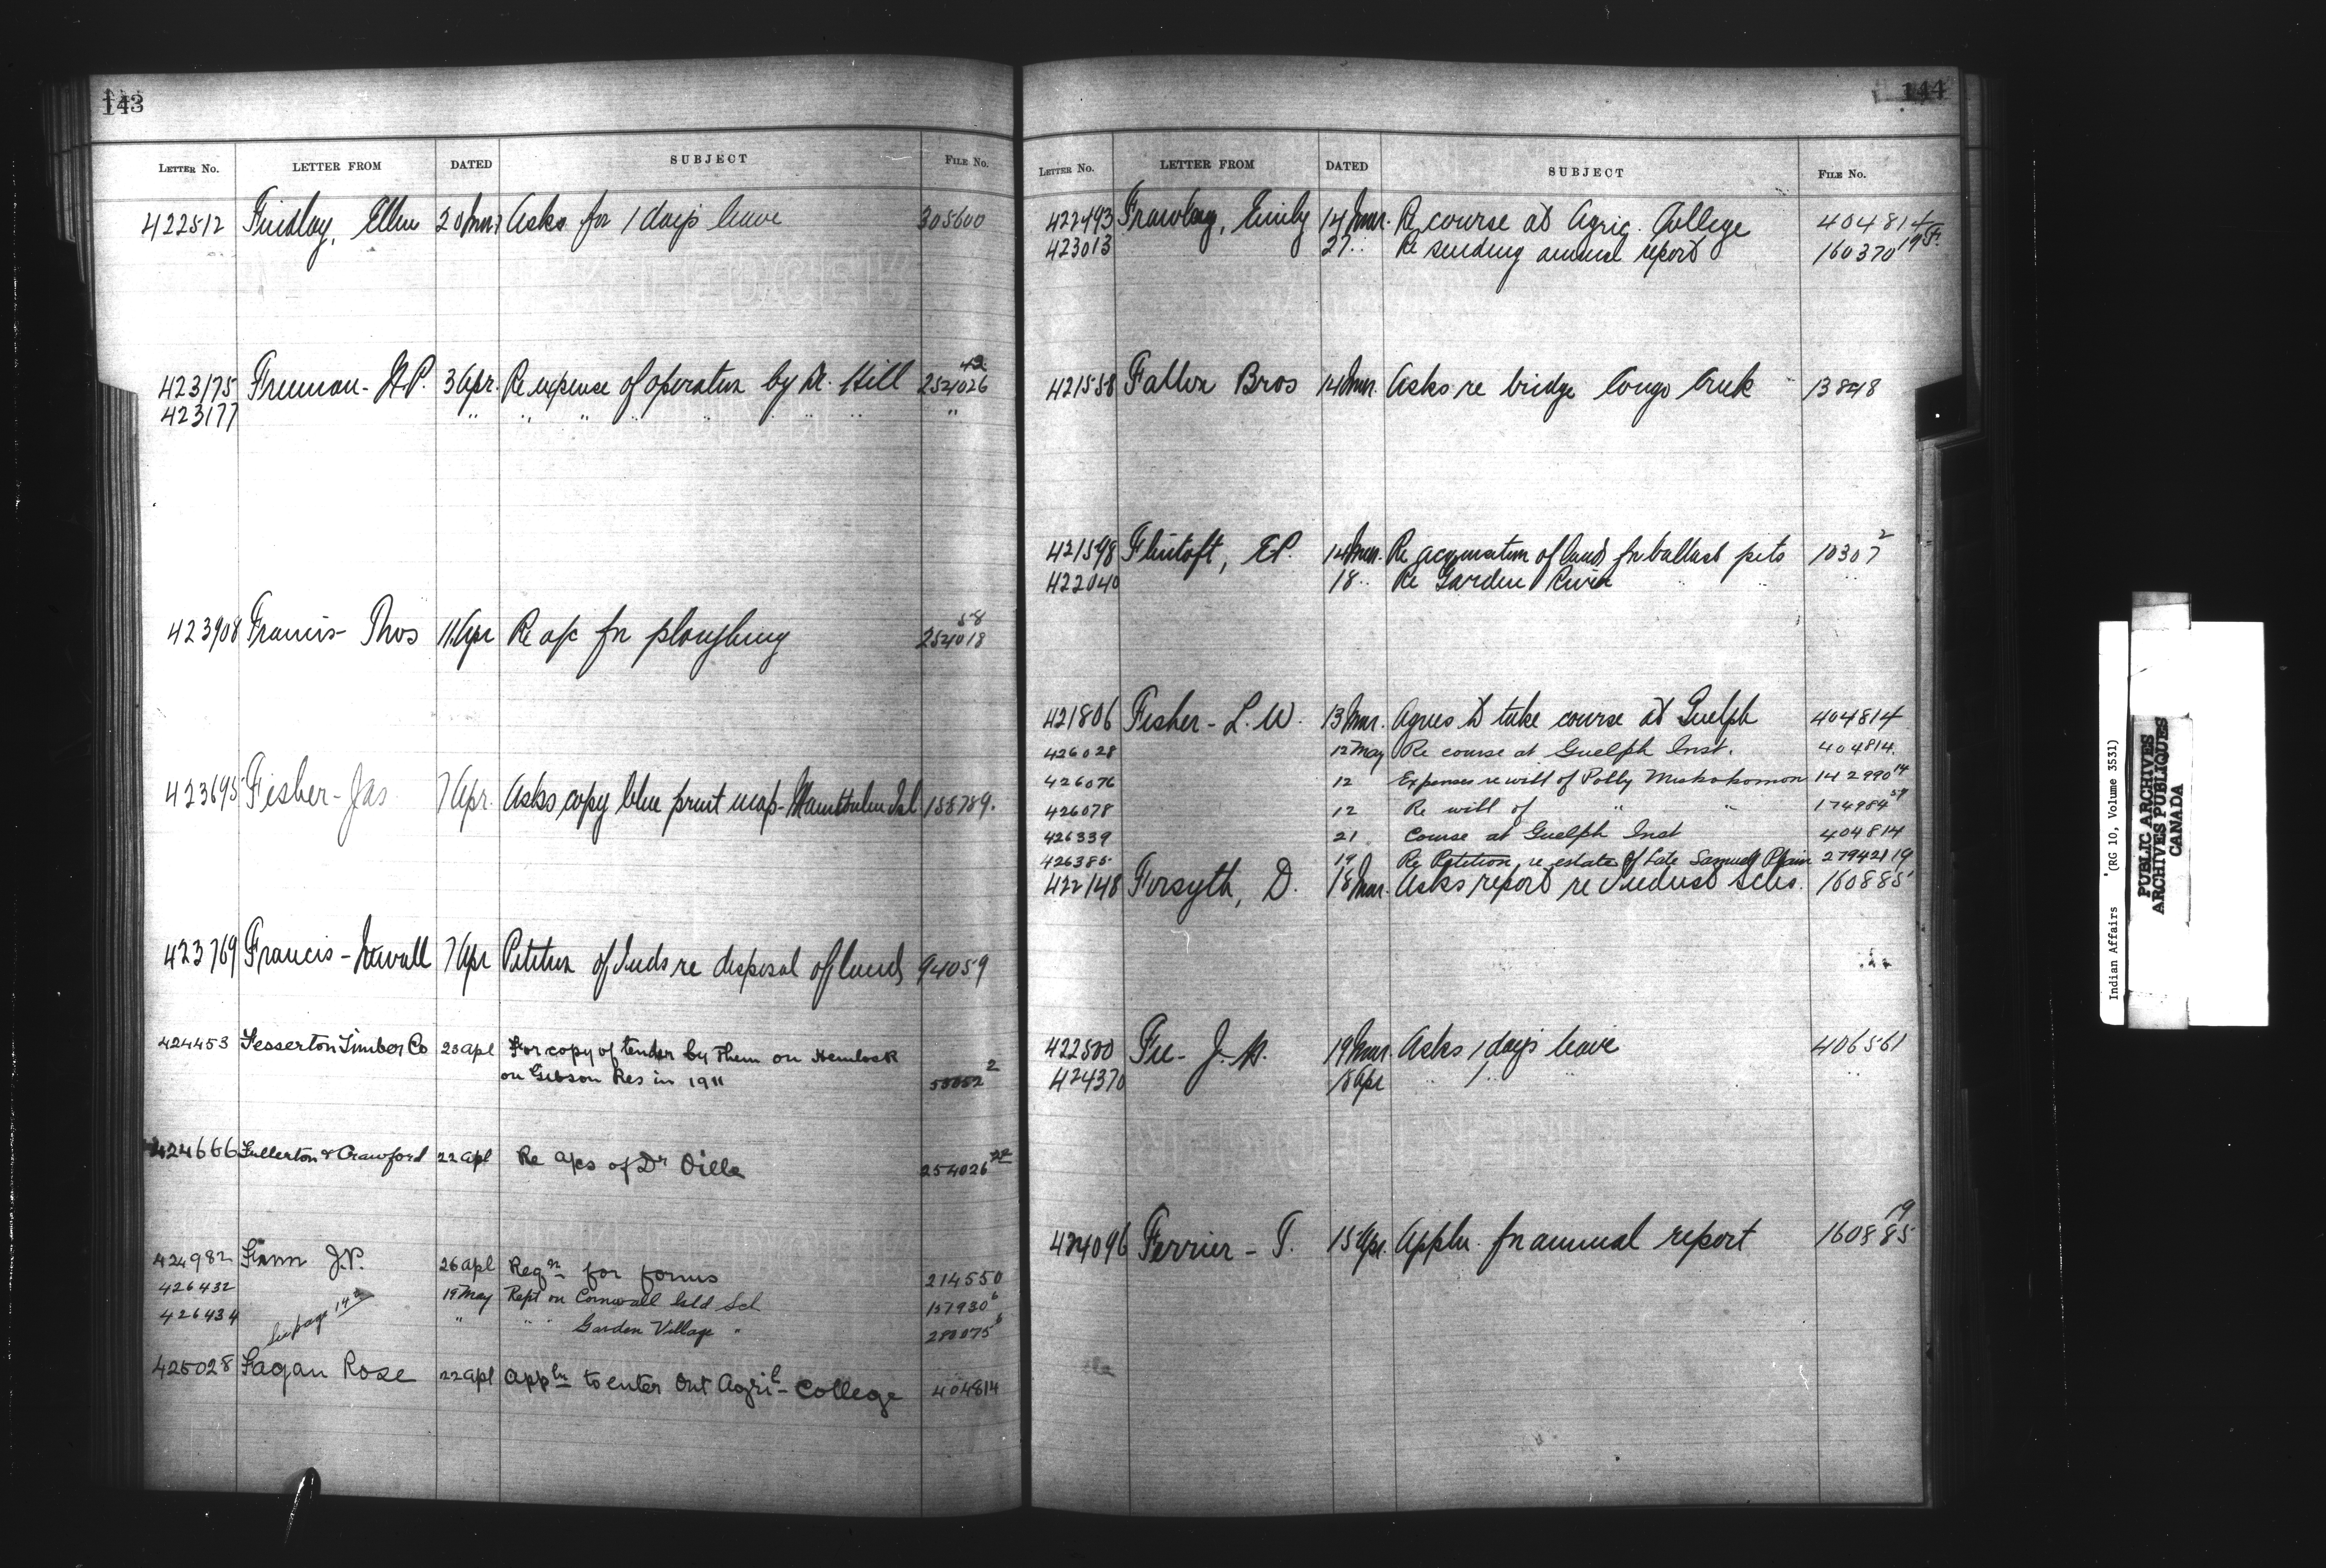 143
LETTER NO. LETTER FROM DATED SUBJECT FILE NO.
422512 Findlay, Ellen 20 Mar Asks for 1 day's leave 305600
423175 Freeman - H.P. 3 Apr. Re expense of operation by Dr. Hill 254026 43
423177 " " " " " " " "
423908 Francis - Thos 11 Apr Re a/c for ploughing 254018 58
423695 Fisher - Jas 7 Apr. Asks copy blue print map - Manitoulin Isl 155789.
423769 Francis - 7 Apr Petition of Inds re disposal of lands 94059
424453 Fesserton Timber Co 23 apl For copy of tender by Them on Hemlock
on Gibson Res in 1911 2
424666 Fullerton & Crawford 22 apl Re a/cs of Dr Oille 254026 22
424982 J.P. 26 apl Reqn for forms 214550
426432 19 May Rept on Cornwall Isld Sch 157930 6
426434 See page 142 " " " Garden Village " 280075 6
425028 Fagan Rose 22 apl Appln to enter Ont Agril - College 404814
144
LETTER NO. LETTER FROM DATED SUBJECT FILE NO.
422493 Frawley, Emily 14 Mar. Re course at Agric. College 404814
423013 27 " Re sending annual report 160370 19 F.
421558 Fallon Bros 14 Mar. Asks re bridge Longs Creek 13848
421598 Flintoft, E.P. 14 Mar. Re acquisition of land for ballast pits 10307 2
422040 18 " Re Garden River " " "
421806 Fisher - L.W. 13 Mar. Agrees to take course at Guelph 404814
426028 12 May Re course at Guelph Inst. 404814.
426076 12 Expenses re will of Polly Miskokomon 142990 14
426078 12 Re will of " " 174984 57
426339 21 Course at Guelph Inst 404814
426385 19 Re Petition re estate of Late Samuel Plain 279421 19
422148 Forsyth, D. 18 Mar. Asks report re Indust Schs. 160885
422500 Fee - J.A. 19 Mar. Asks 1 day's leave 406561
424370 18 Apr " 1 " " "
424096 Ferrier - T. 15 Apr. Appln. for annual report 160885 19
Indian Affairs (RG 10, Volume 3531)
PUBLIC ARCHIVES
ARCHIVES PUBLIQUES
CANADA